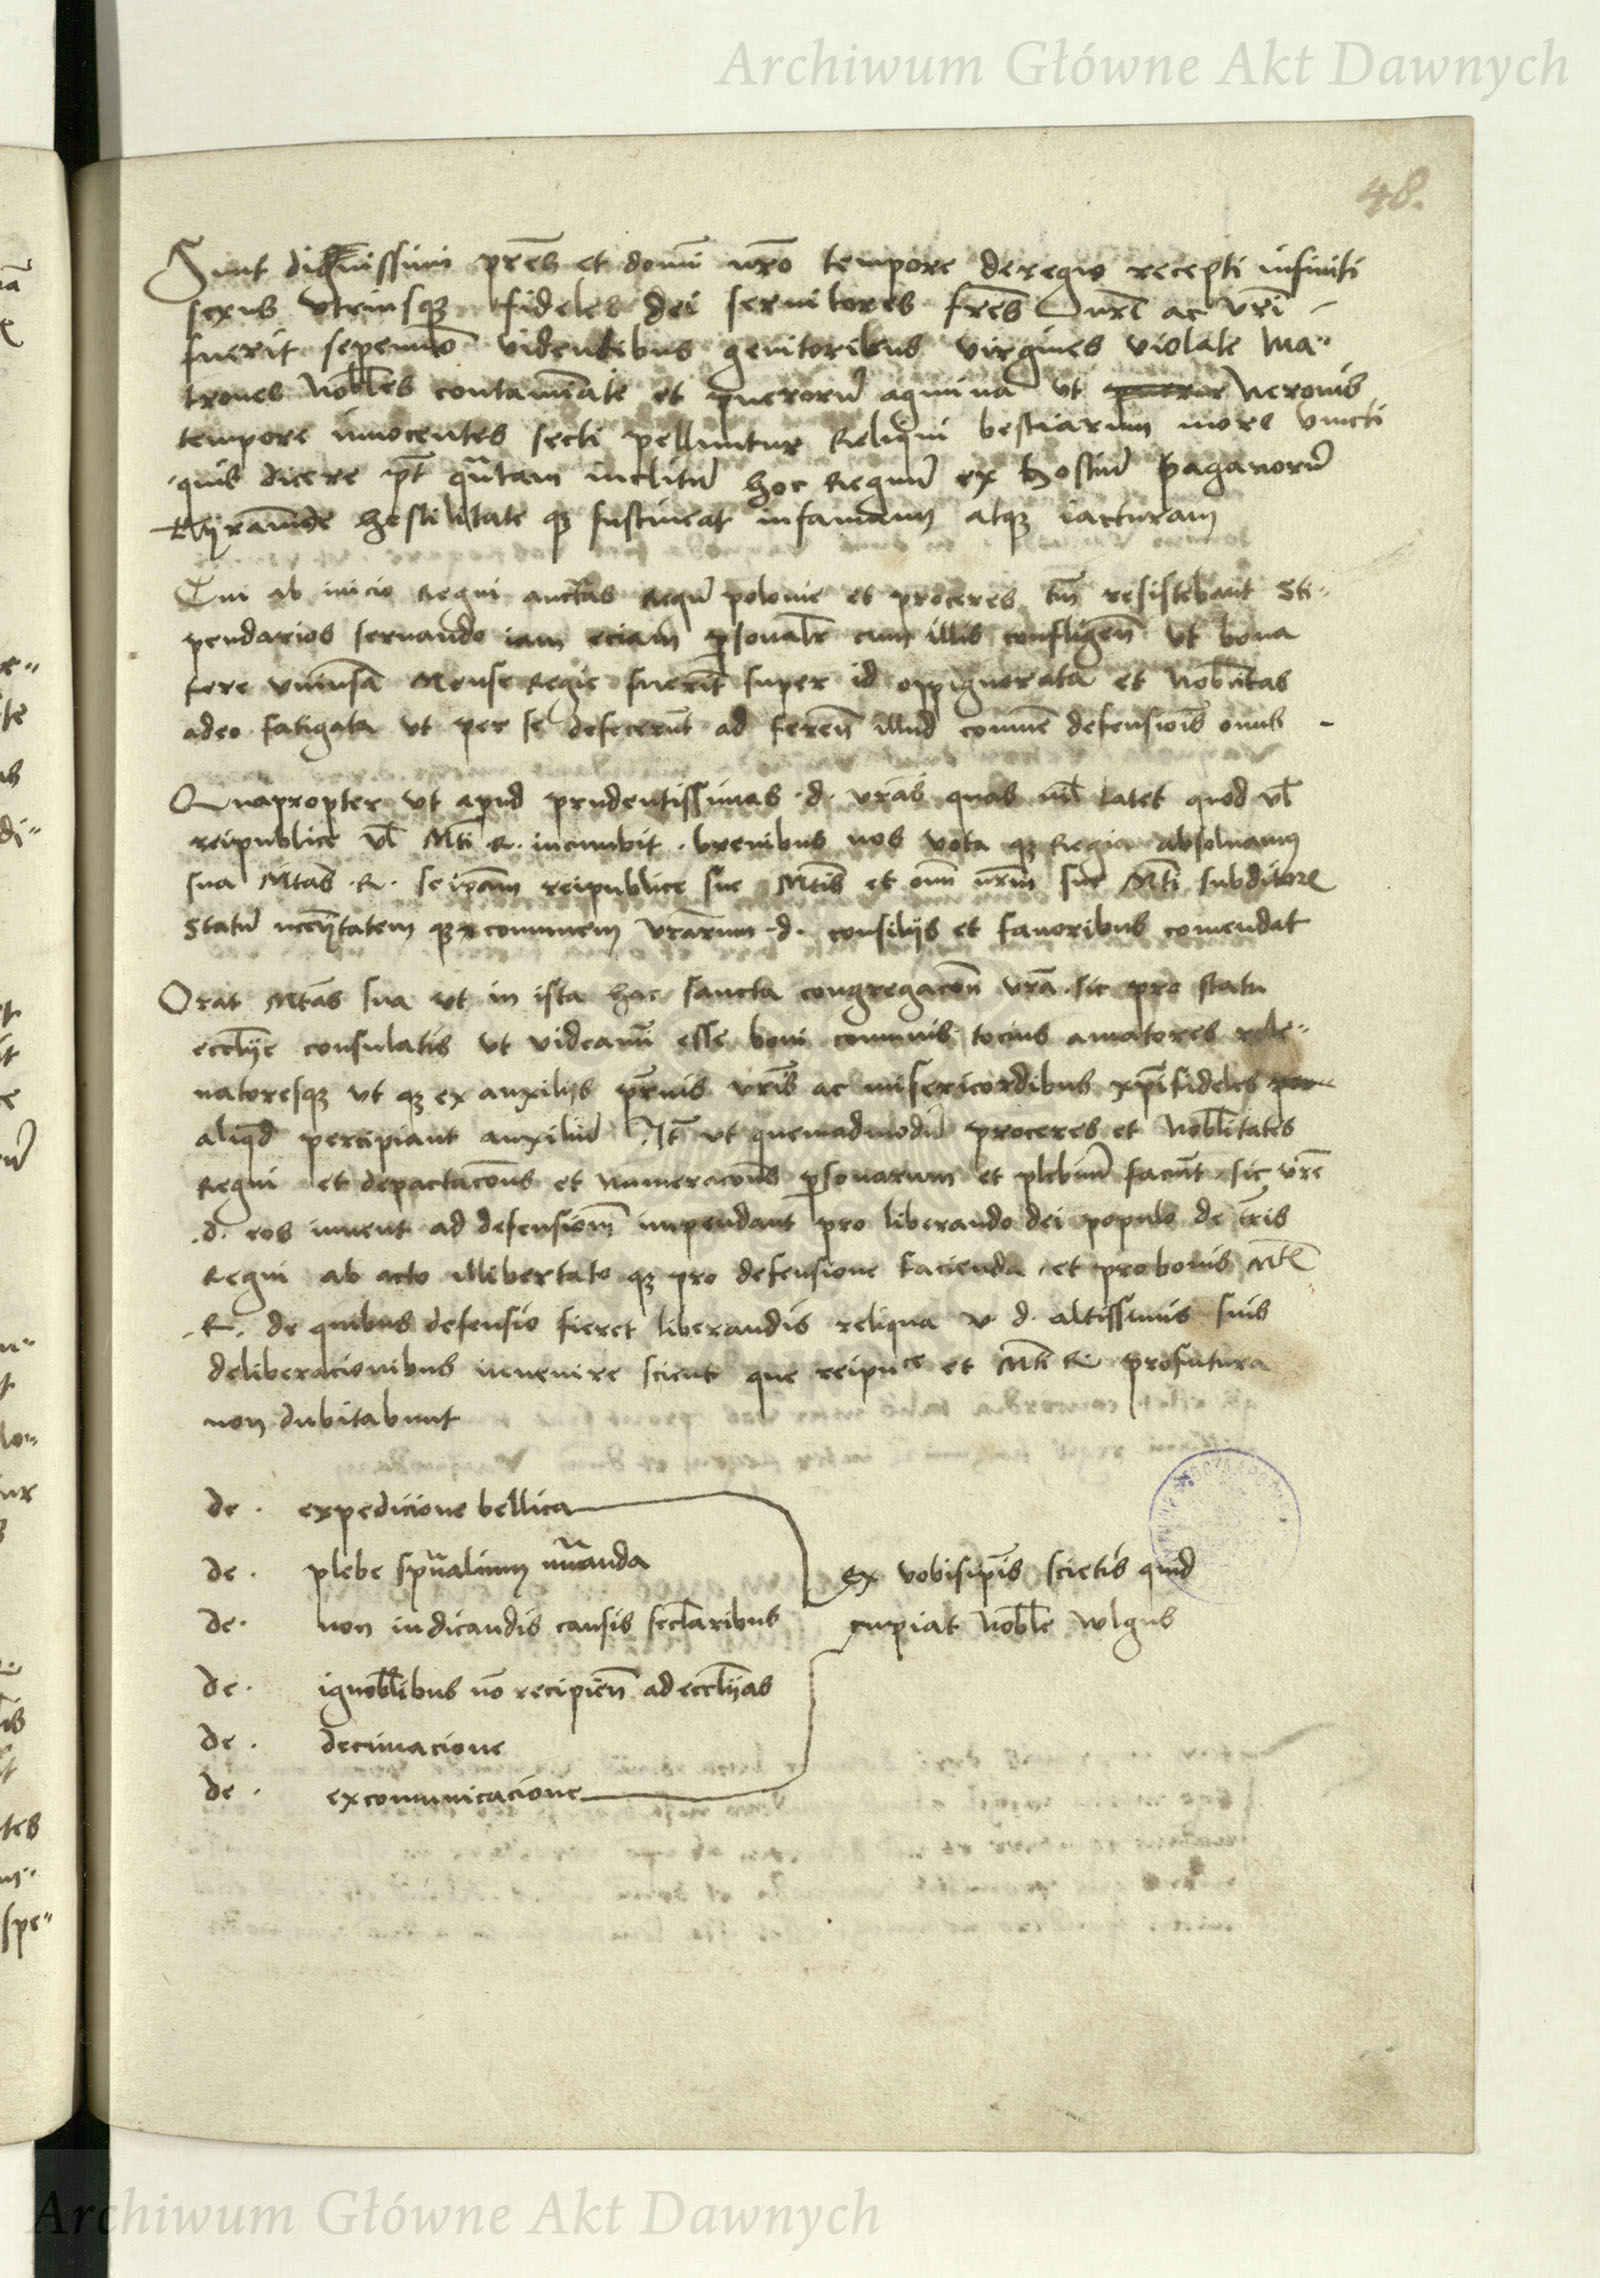 Archiwum Główne Akt Dawnych
48.
Sunt dignissimi pr̃es et domĩ nr̃o tempore de regno recepti infiniti
sexus utriusq̃ fideles dei servitores fr̃es nr̃i ac vr̃i
fuerit sepenum̃o videntibus genitoribus virgines violate ma-
trones nobl̃es contamiñate et puerorũ agmina ut Neronis
tempore innocentes secti pelluntur Reliqui bestiarum more vincti
quis dicere pt̃ qũtam inclitũ hoc Regnũ ex hostiũ paganorũ
hostilitate q̃ sustineat infamiam atq̃ iacturam
Qui ab inicio Regni auct̃as regũ polonie et proceres tm̃ resistebant sti-
pendarios servando iam eciam p̱sonalr̃ cum illis confligeñ ut bona
fere univr̃sa Mense Regie fuerĩt super id oppignorata et nobil̃itas
adeo fatigata ut per se defecerũt ad fereñ illud comũe defensiois̃ onus
Quapropter ut apud prudentissimas .d. vr̃as quas nil̃ latet quod vl̃
reipublice vl̃ Mt̃i R. incumbit . brevibus nos vota q̃ Regia absolvam
sua Mt̃as .R. seip̃am reipublice sue Mt̃is et om̃ nr̃m sue Mt̃i subditor̃
statũ necc̃itatem q̃ communem vr̃arum .d. consiliis et favoribus comendat
Orat Mt̃as sua ut in ista hac sancta congregacoñ vr̃a sic pro statu
eccl̃ie consulatis ut videamĩ esse boni comunis tocius amatores rele-
vatoresq̃ ut q̃ ex auxiliis pr̃nis vr̃is ac misericordibus xp̃ifideles
aliq̃d percipiant auxiliũ It̃ ut quemadmodũ proceres et nobl̃itates
Regni et depactacoñs et numeracoñs p̱sonarum et plebiũ faciũt sic vr̃e
.d. eos iuvent ad defensiom̃ impendant pro liberando dei populo de t̃ris
Regni ab acto illibertato q̃ pro defensione facienda et pro bonis Mt̃e
.R. de quibus defensio fieret liberandis reliqua v d. altissimis suis
deliberacionibus invenire scient que reipu̅ce et Mt̃i R profutura
non dubitabunt
de . expedicione bellica
de . plebe spũalium nũanda
de . non iudicandis causis secl̃aribus
de . ignobl̃ibus nõ recipieñ ad eccl̃ias
de . decimacione
de . excomunicacione
Ex vobisip̃is scietis quid
cupiat nobl̃e wlgus
Archiwum Główne Akt Dawnych